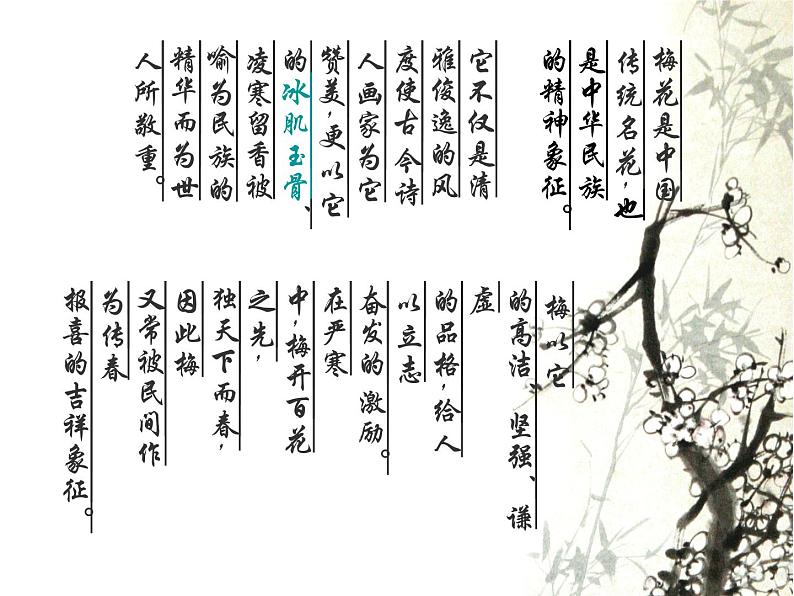 梅花是中国
传统名花，也
是中华民族
的精神象征。
它不仅是清
雅俊逸的风
度使古今诗
人画家为它
赞美，更以它
的冰肌玉骨、
凌寒留香被
喻为民族的
精华而为世
人所敬重。
梅以它
的高洁、坚强、谦
虚
的品格，给人
以立志
奋发的激励。
在严寒
中，梅开百花
之先，
独天下而春，
因此梅
又常被民间作
为传春
报喜的吉祥象征。